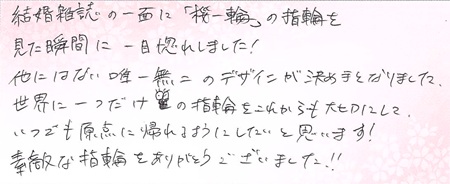 結婚雑誌の一面に「桜一輪」の指輪を
見た瞬間に一目惚れしました!
他にはない唯一無二のデザインが決め手となりました。
世界に一つだけの指輪をこれからも大切にして、
いつでも原点に帰れるようにしたいと思います!
素敵な指輪をありがとうございました!!